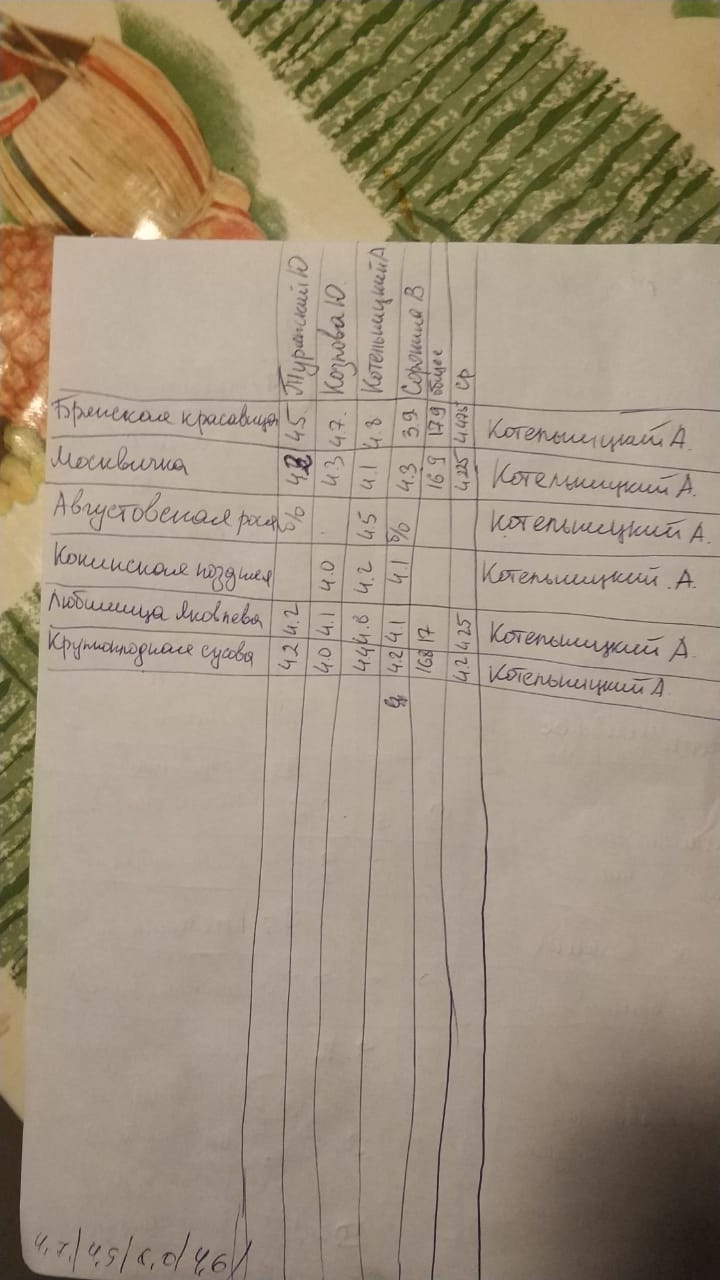 Туринский Ю Козлова Ю. Котельницкий А Сорокина В общее ср
Брянская красавица 4.5 4.7. 4.8 3.9 17.9 4.475 Котельницкий А.
Москвичка 4.2 4.3 4.1 4.3 16.9 4.225 Котельницкий А.
Августовская роса б/о . 4.5 б/о Котельницкий А.
Кокинская поздняя 4.0 4.2 4.1 Котельницкий .А.
Любимица Яковлева 4.2 4.1 4.6 4.1 17 4.25 Котельницкий А.
Крупноплодная сусова 4.2 4.0 4.4 4.2 16.8 4.2 Котельницкий А.
4,7,/4,5/8,0/4,6/